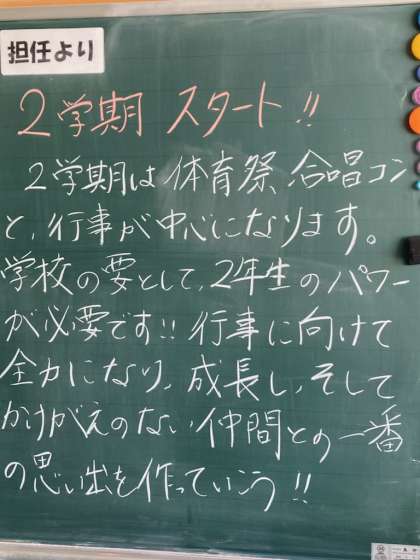 担任より
2学期 スタート!!
2学期は体育祭、合唱コン
と、行事が中心になります。
学校の要として、2年生のパワー
が必要です!! 行事に向けて
全力になり、成長し、そして
かけがえのない仲間との一番
の思い出を作っていこう!!